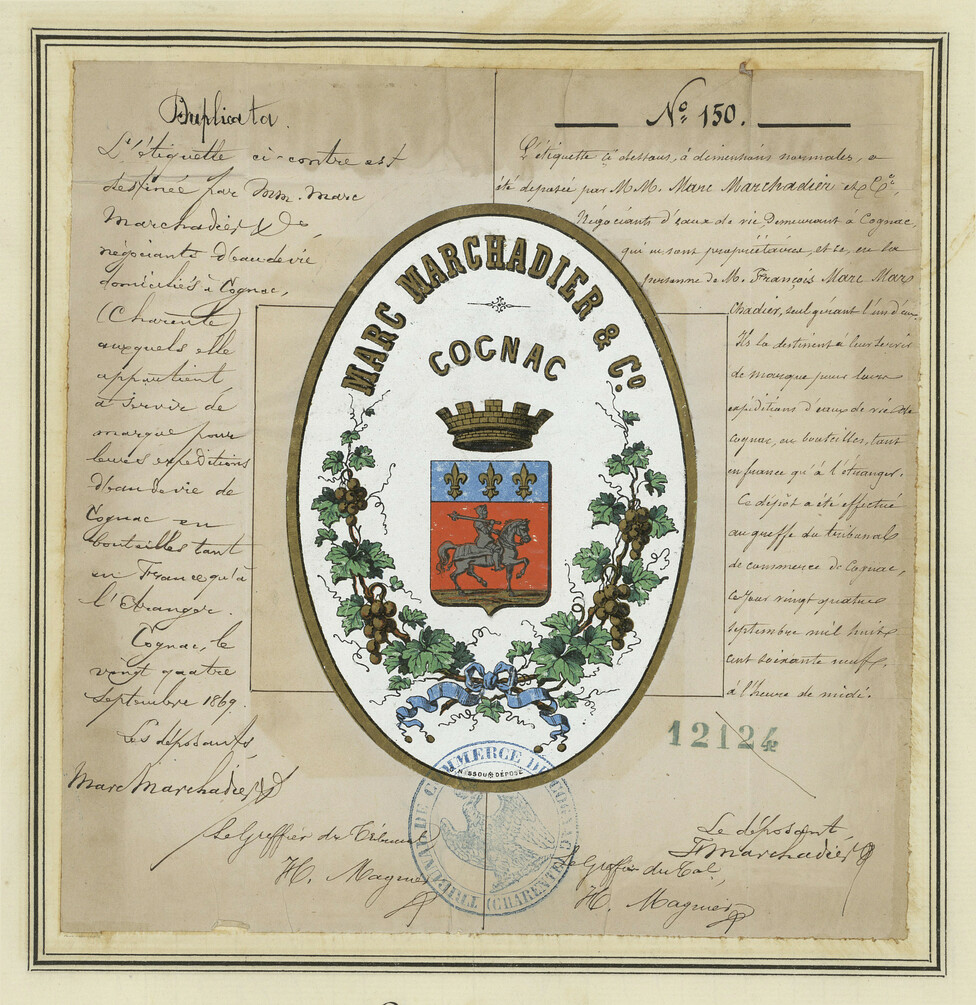 Duplicata.
L'étiquette ci-contre est
destinée par MM. Marc
Marchadier & Co,
négociants d'eau de vie
domiciliés à Cognac,
(Charente)
auxquels elle
appartient,
à servir de
marque pour
leurs expéditions
d'eau de vie de
Cognac en
bouteilles tant
en France qu'à
l'Etranger.
Cognac, le
vingt quatre
Septembre 1869.
Les déposants,
Marc Marchadier & Co
Le Greffier du Tribunal
H. Magnier
No. 150.
L'étiquette ci dessous, à dimensions normales, a
été déposée par M.M. Marc Marchadier et Cie,
Négociants d'eaux de vie, Demeurant à Cognac,
qui en sont propriétaires, et ce, en la
personne de M. François Marc Mar
chadier, seul gérant l'un d'eux.
Ils la destinent à leur servir
de marque pour leurs
expéditions d'eaux de vie de
Cognac, en bouteilles, tant
en france qu'à l'étranger.
Ce dépôt a été effectué
au greffe du tribunal
de commerce de Cognac,
ce jour vingt quatre
septembre mil huit
cent soixante neuf,
à l'heure de midi.
12124
Le déposant
F Marchadier
Le Greffier du Tal,
H. Magnier
MARC MARCHADIER & Co.
COGNAC
DÉPOSÉ
TRIBUNAL DE COMMERCE DE COGNAC
(CHARENTE)